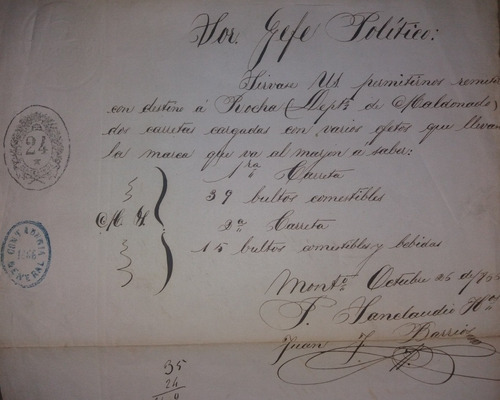 Sor. Gefe Político:
Sirvase Us permitirnos remitir
con destino á Rocha (Depto. de Maldonado)
dos carretas cargadas con varios efetos que llevan
la marca que va al margen á saber:
24
1ra Carreta
39 bultos comestibles
2a Carreta
15 bultos comestibles y bebidas
CONTADURIA
GENERAL
1866
Monto. Octubre 25 de
P. Sanclaudio
Juan J. Barrios
35
24